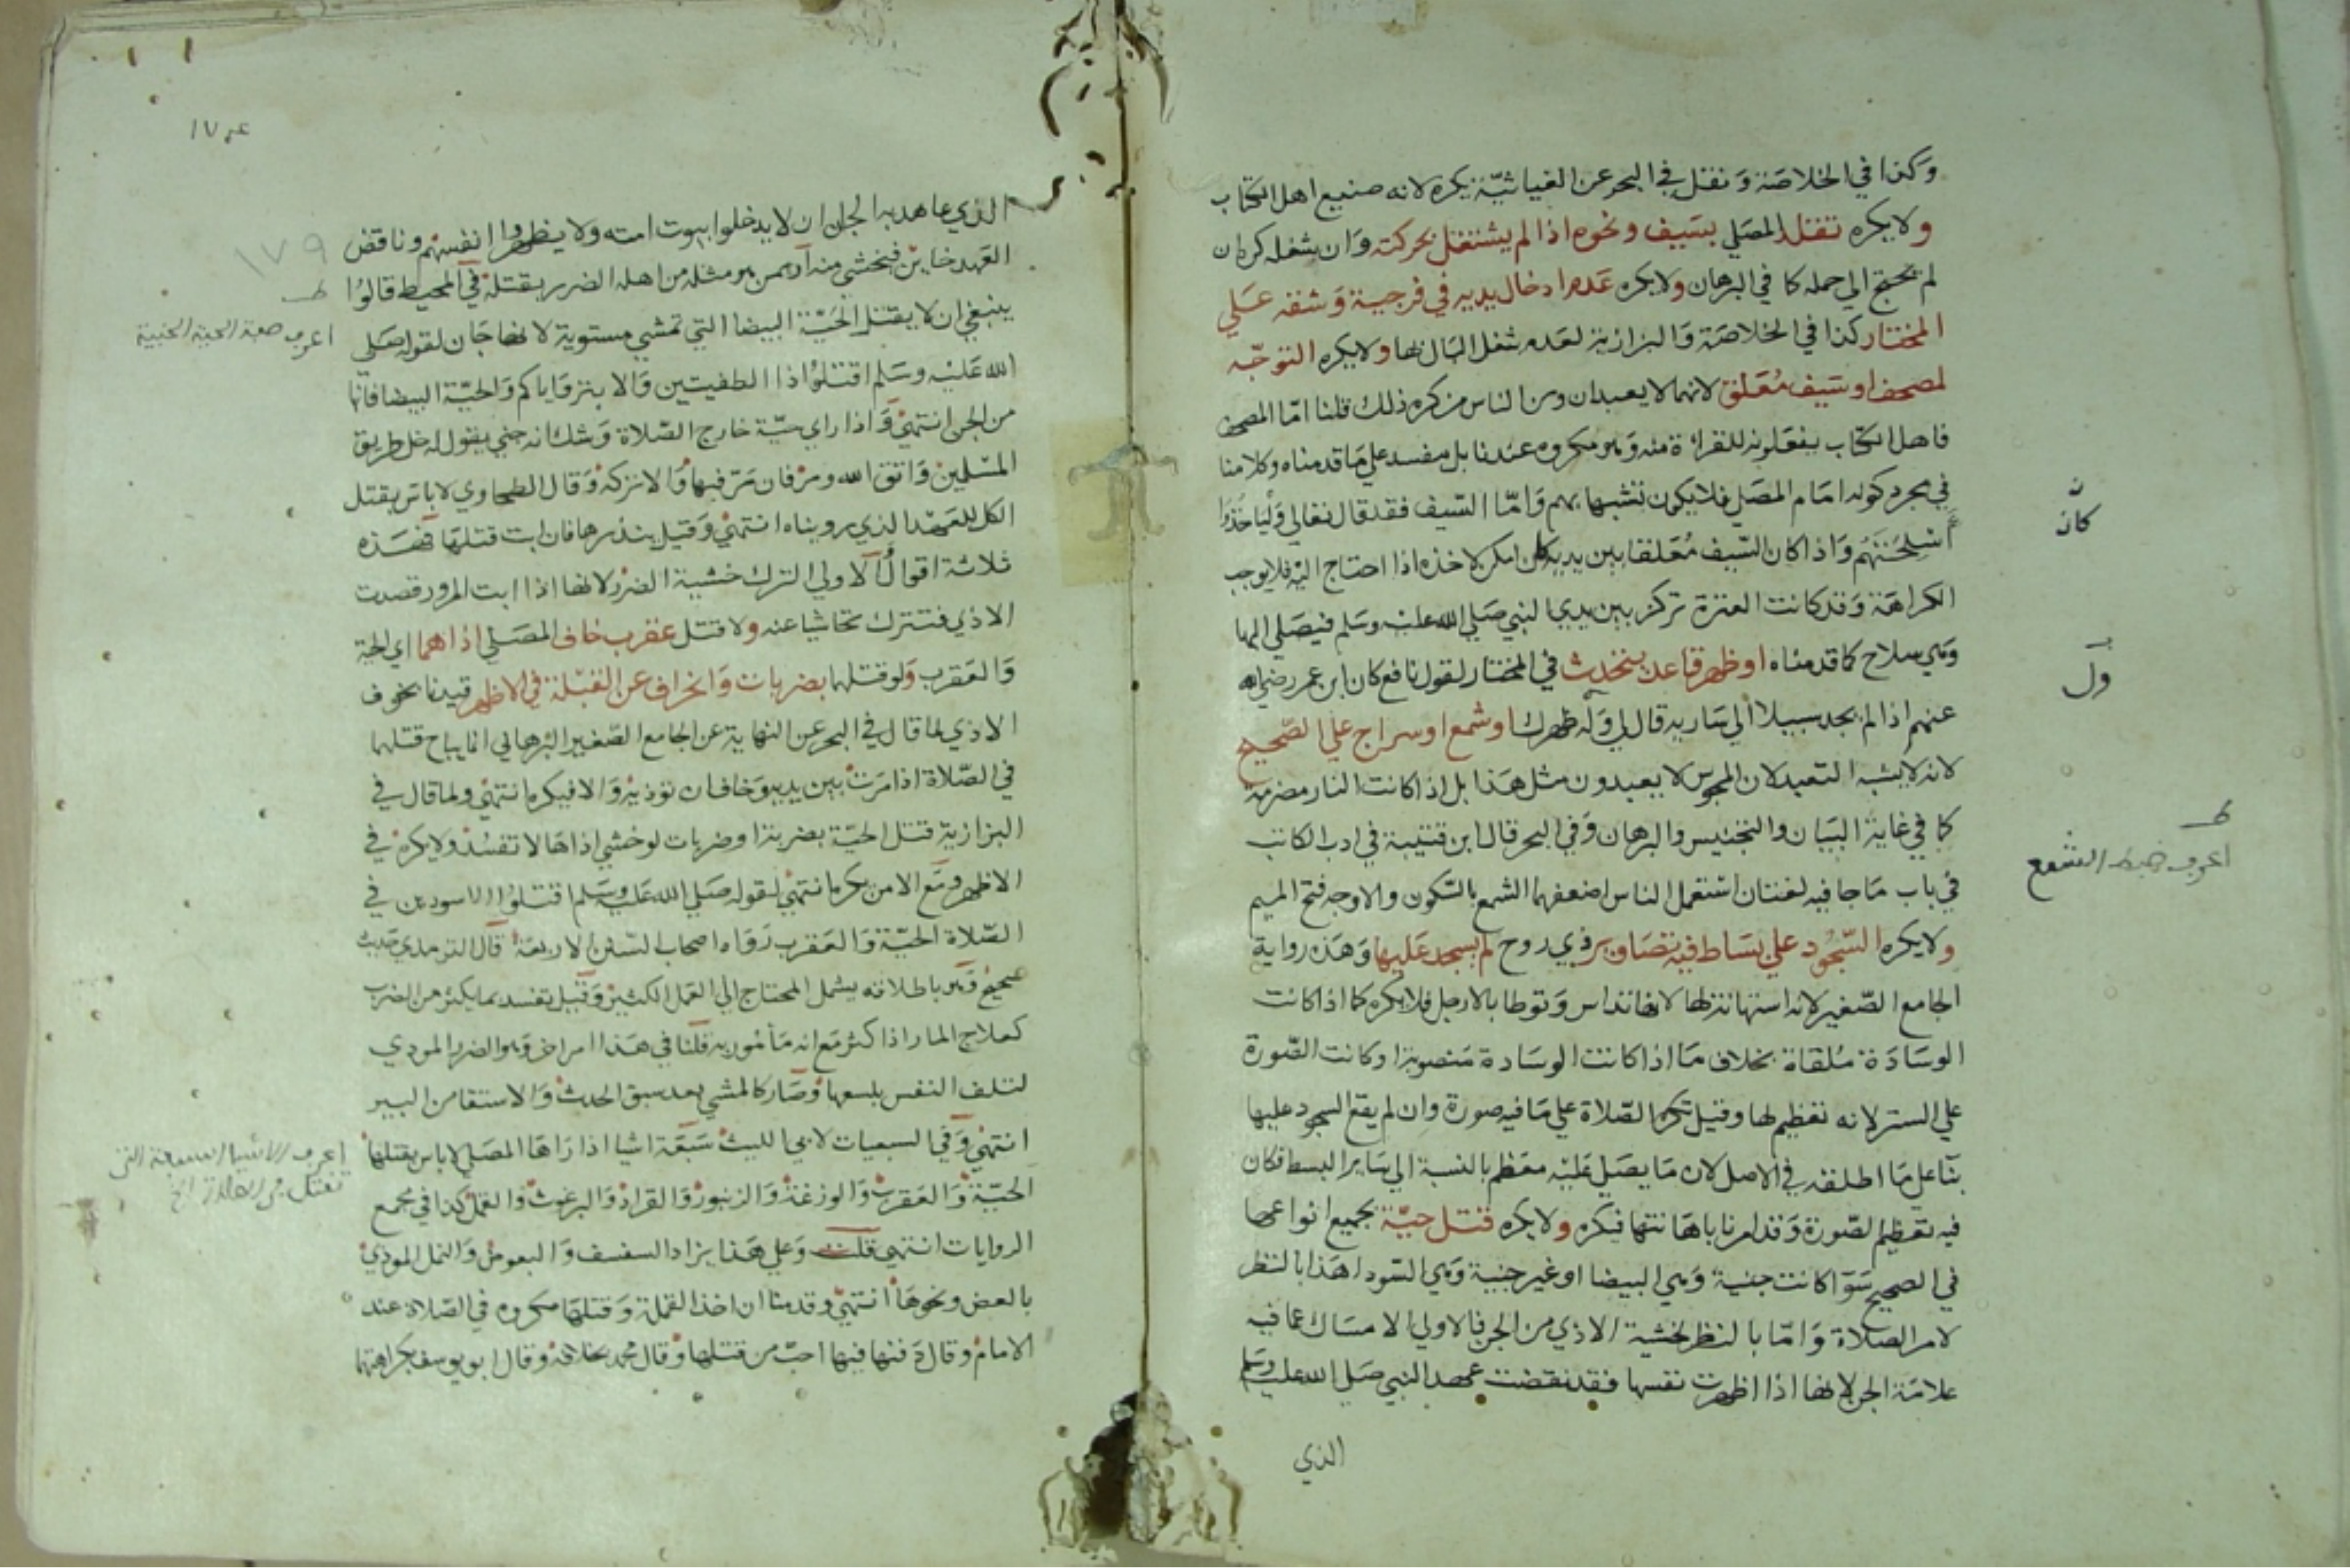 وكذا في الخلاصة ونقل في البحر عن الغياثية يكره لانه صنيع اهل الكتاب
ولا يكره تقلد المصلي بسيف ونحوه اذا لم يشتغل بحركته وان شغله كره ان
لم يحتج الي حمله كما في البرهان ولا يكره عدم ادخال يديه في فرجية وشقه علي
المختار كذا في الخلاصة والبزازية لعدم شغل البال بها ولا يكره التوجه
لمصحف او سيف معلق لانهما لا يعبدان ومن الناس من كره ذلك قلنا امّا المصحف
فاهل الكتاب يفعلونه للقراءة منه وهو مكروه عندنا بل مفسد علي ما قدمناه وكلامنا
في مجرد كونه امام المصلي فلا يكون تشبها بهم وامّا السّيف فقد قال تعالي وليأخذوا
اسلحتهم واذا كان السّيف معلقا بين يديه كان امكن لاخذه اذا احتاج اليه فلا يوجب
الكراهة وقد كانت العنزة تركز بين يدي النبي صلي الله عليه وسلم فيصلي اليها
وهي سلاح كما قدمناه او ظهر قاعد يتحدث في المختار لقول نافع كان ابن عمر رضي الله
عنهم اذا لم يجد سبيلا الي سارية قال لي وله ظهرك او شمع او سراج علي الصّحيح
لانه لا يشبه التعبد لان المجوس لا يعبدون مثل هذا بل اذا كانت النار مضرمة
كما في غاية البيان والتجنيس والبرهان وفي البحر قال ابن قتيبة في ادب الكاتب
في باب ما جا فيه لغتان استعمل الناس اضعفهما الشمع بالسّكون والاوجه فتح الميم
ولا يكره السّجود علي بساط فيه تصاوير ذي روح لم يسجد عليها وهذه رواية
الجامع الصّغير لانه استهانة لها لانها تداس وتوطا بالارجل فلا يكره كما اذا كانت
الوسادة ملقاة بخلاف ما اذا كانت الوسادة منصوبة او كانت الصّورة
علي الستر لانه تعظيم لها وقيل تكره الصّلاة علي ما فيه صورة وان لم يقع السجود عليها
بنآ علي ما اطلقه في الاصل لان ما يصلي عليه معظم بالنسبة الي ساير البسط فكان
فيه تعظيم الصّورة وقد امرنا باهانتها فيكره ولا يكره قتل حيّة بجميع انواعها
في الصحيح سوآ كانت جنية وهي البيضا او غير جنية وهي السّودا هذا بالنظر
لامر الصلاة وامّا بالنظر لخشية الاذي من الجن فالاولي الامساك عما فيه
علامة الجن لانها اذا اظهرت نفسها فقد نقضت عهد النبي صلي الله عليه وسلم
الذي
كان
ول
اعرف ضبط الشمع
١٧٩
الذي عاهد به الجان ان لا يدخلوا بيوت امته ولا يظهروا انفسهم وناقض
العهد خاين فيخشي منه او ممن هو مثله من اهله الضرر بقتله في المحيط قالوا
ينبغي ان لا يقتل الحيّة البيضا التي تمشي مستوية لانها جان لقوله صلي
الله عليه وسلم اقتلوا ذا الطفيتين والابتر واياكم والحيّة البيضا فانها
من الجن انتهي واذا راي حيّة خارج الصّلاة وشك انه جني يقول له خل طريق
المسلمين واتق الله ومر فان مرّ فبها والا تركه وقال الطحاوي لا باس بقتل
الكل للعهد الذي رويناه انتهي وقيل ينذرها فان ابت قتلها فهذه
ثلاثة اقوال الاولي الترك خشية الضرر لانها اذا ابت المرور قصدت
الاذي فتترك تحاشيا عنه ولا قتل عقرب خاف المصلي اذاهما اي الحية
والعقرب ولو قتلهما بضربات وانحراف عن القبلة في الاظهر قيدنا بخوف
الاذي لما قال في البحر عن النهاية عن الجامع الصّغير البرهاني انما يباح قتلهما
في الصّلاة اذا مرت بين يديه وخاف ان تؤذيه والا فيكره انتهي ولما قال في
البزازية قتل الحيّة بضربة او ضربات لو خشي اذاها لا تفسد ولا يكره في
الاظهر ومع الامن يكره انتهي لقوله صلي الله عليه وسلم اقتلوا الاسودين في
الصّلاة الحيّة والعقرب رواه اصحاب السنن الاربعة قال الترمذي حديث
صحيح وهو باطلاقه يشمل المحتاج الي العمل الكثير وقيل تفسد بما يكثر من الضرب
كعلاج المار اذا كثر مع انه مأمور به قلنا في هذا امراض وهو الضرر المودي
لتلف النفس بلسعها وصار كالمشي بعد سبق الحدث والاستقا من البير
انتهي وفي السبعيات لابي الليث سبعة اشيا اذا راها المصلي لا باس بقتلها
الحيّة والعقرب والوزغة والزنبور والقراد والبرغوث والقمل كذا في مجمع
الروايات انتهي قلت وعلي هذا يزاد السفسف والبعوض والنمل الموذي
بالعض ونحوها انتهي وقدمنا ان اخذ القملة وقتلها مكروه في الصّلاة عند
الامام وقال دفنها فيها احبّ من قتلها وقال محمد بخلافه وقال ابو يوسف بكراهتهما
اعرف صفة الحية الجنية
اعرف الاشيا السبعة التي
تقتل في الصلاة الخ